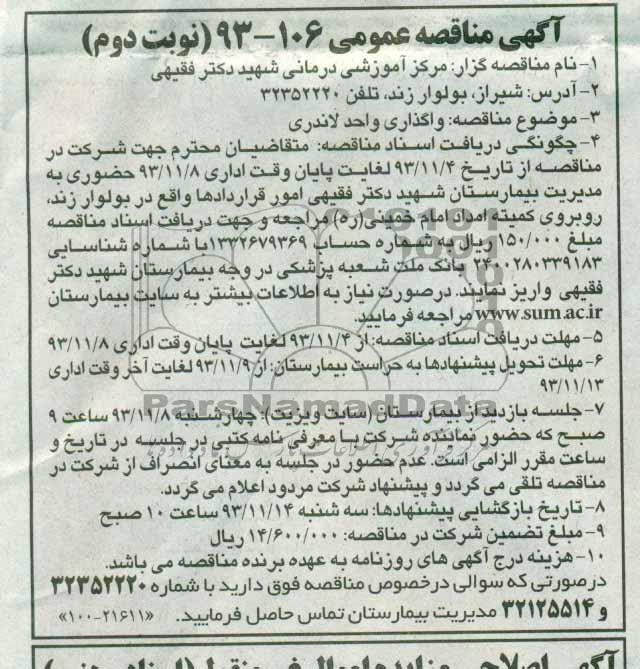 آگهی مناقصه عمومی ۱۰۶-۹۳ (نوبت دوم)
۱- نام مناقصه گزار: مرکز آموزشی درمانی شهید دکتر فقیهی
۲- آدرس: شیراز، بولوار زند، تلفن ۳۲۳۵۲۲۲۰
۳- موضوع مناقصه: واگذاری واحد لاندری
۴- چگونگی دریافت اسناد مناقصه: متقاضیان محترم جهت شرکت در
مناقصه از تاریخ ۹۳/۱۱/۴ لغایت پایان وقت اداری ۹۳/۱۱/۸ حضوری به
مدیریت بیمارستان شهید دکتر فقیهی امور قراردادها واقع در بولوار زند،
روبروی کمیته امداد امام خمینی(ره) مراجعه و جهت دریافت اسناد مناقصه
مبلغ ۱۵۰/۰۰۰ ریال به شماره حساب ۱۳۳۲۶۷۹۳۶۹ با شماره شناسایی
۲۴۰۰۲۸۰۳۳۹۱۸۳ بانک ملت شعبه پزشکی در وجه بیمارستان شهید دکتر
فقیهی واریز نمایند. درصورت نیاز به اطلاعات بیشتر به سایت بیمارستان
www.sum.ac.ir مراجعه فرمایید.
۵- مهلت دریافت اسناد مناقصه: از ۹۳/۱۱/۴ لغایت پایان وقت اداری ۹۳/۱۱/۸
۶- مهلت تحویل پیشنهادها به حراست بیمارستان: از ۹۳/۱۱/۹ لغایت آخر وقت اداری
۹۳/۱۱/۱۳
۷- جلسه بازدید از بیمارستان (سایت ویزیت): چهارشنبه ۹۳/۱۱/۸ ساعت ۹
صبح که حضور نماینده شرکت با معرفی نامه کتبی در جلسه در تاریخ و
ساعت مقرر الزامی است. عدم حضور در جلسه به معنای انصراف از شرکت در
مناقصه تلقی می گردد و پیشنهاد شرکت مردود اعلام می گردد.
۸- تاریخ بازگشایی پیشنهادها: سه شنبه ۹۳/۱۱/۱۴ ساعت ۱۰ صبح
۹- مبلغ تضمین شرکت در مناقصه: ۱۴/۶۰۰/۰۰۰ ریال
۱۰- هزینه درج آگهی های روزنامه به عهده برنده مناقصه می باشد.
درصورتی که سوالی درخصوص مناقصه فوق دارید با شماره ۳۲۳۵۲۲۲۰
و ۳۲۱۲۵۵۱۴ مدیریت بیمارستان تماس حاصل فرمایید. «۲۱۶۱۱-۱۰۰»
ParsNamadData